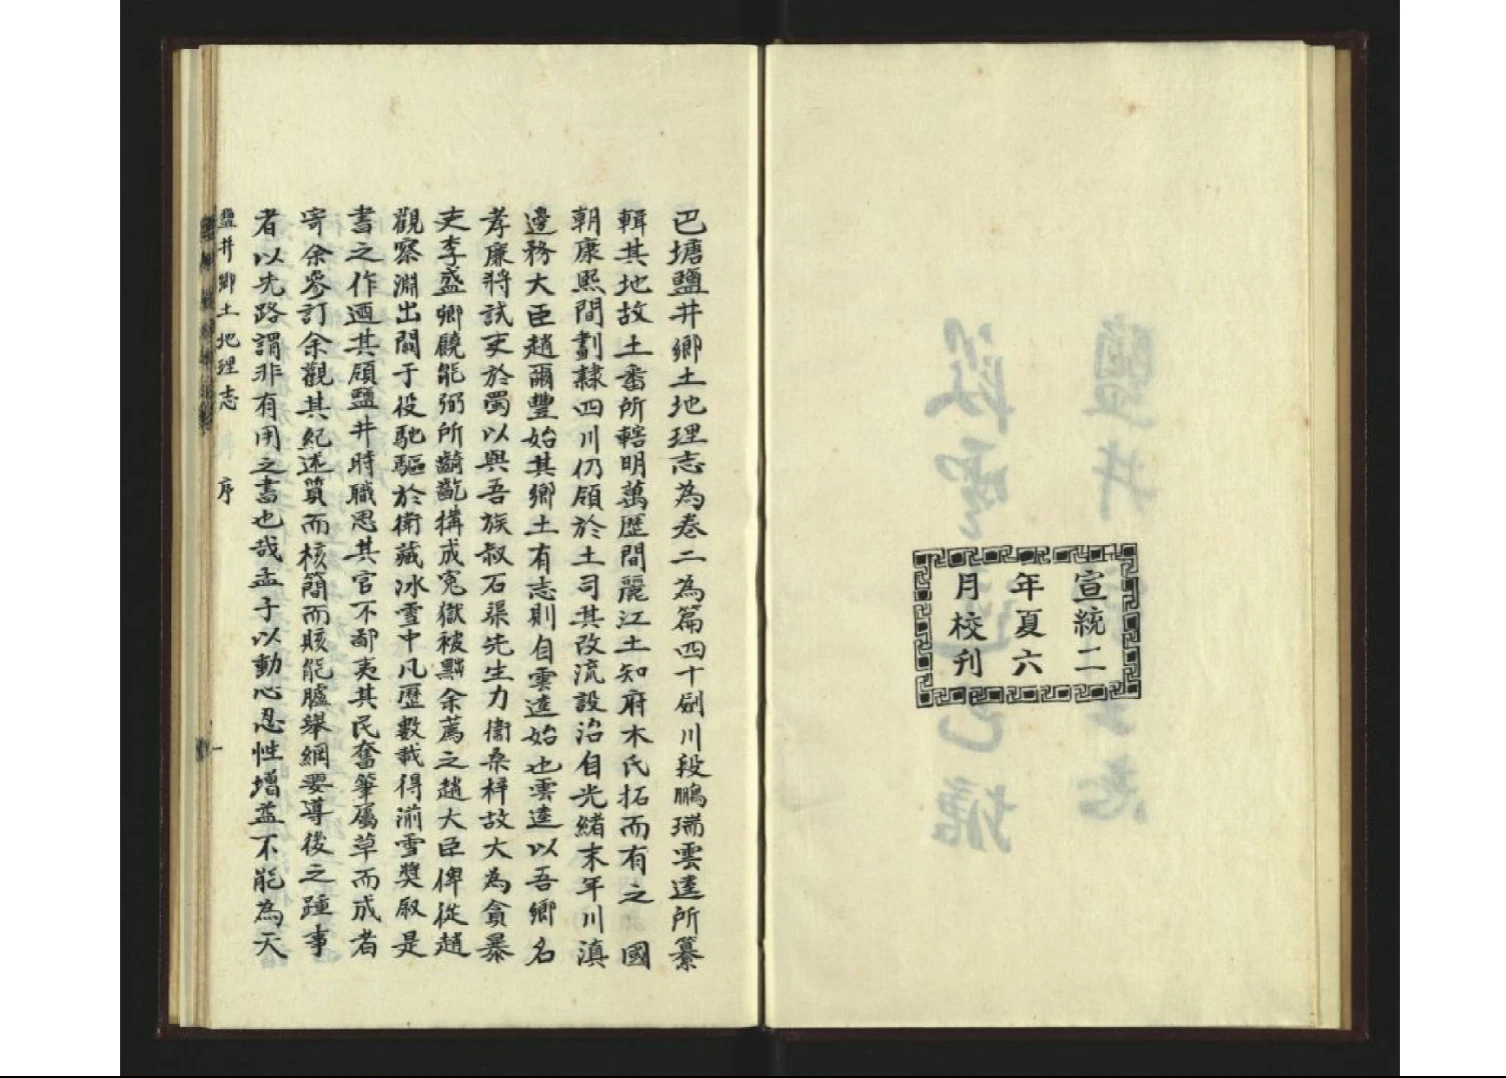 宣統二
年夏六
月校刊
巴塘鹽井鄉土地理志為卷二為篇四十劍川段鵬瑞雲逵所纂
輯其地故土番所轄明萬歷間麗江土知府木氏拓而有之 國
朝康熙間劃隸四川仍領於土司其改流設治自光緒末年川滇
邊務大臣趙爾豐始其鄉土有志則自雲逵始也雲逵以吾鄉名
孝廉將試吏於蜀以與吾族叔石渠先生力衞桑梓故大為貪暴
吏李盛卿饒能弼所齮齕搆成冤獄被黜余薦之趙大臣俾從趙
觀察淵出關于役馳驅於衛藏冰雪中凡歷數載得湔雪獎敘是
書之作迺其領鹽井時職思其官不鄙夷其民奮筆屬草而成者
寄余參訂余觀其紀述質而核簡而賅能臚舉綱要導後之踵事
者以先路謂非有用之書也哉孟子以動心忍性增益不能為天
鹽井鄉土地理志 序 一